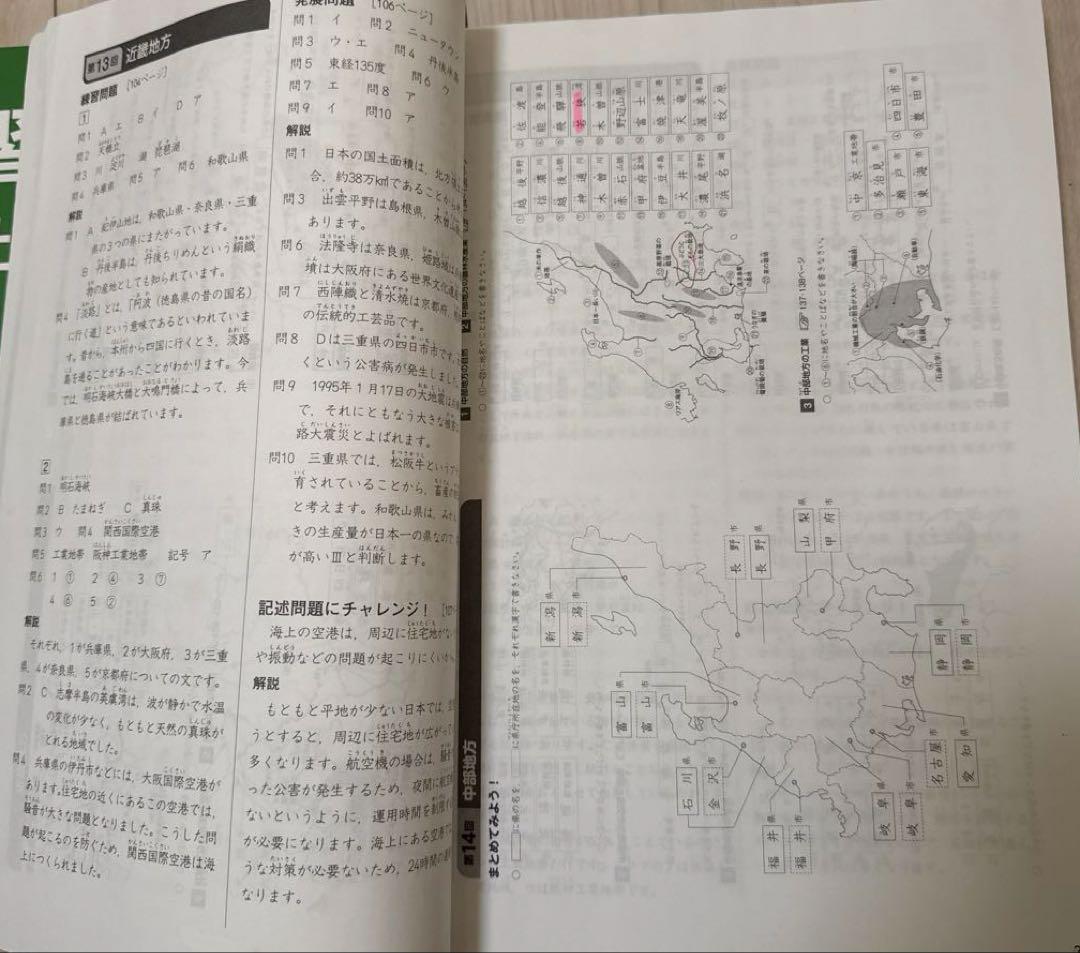 第13回 近畿地方
練習問題 [106ページ]
1
問1 A エ B イ D ア
問2 天橋立
問3 川 淀川 湖 琵琶湖
問4 兵庫県 問5 ア 問6 和歌山県
解説
問1 A 紀伊山地は，和歌山県・奈良県・三重
県の3つの県にまたがっています。
B 丹後半島は，丹後ちりめんという絹織
物の産地としても知られています。
問4 「淡路」とは，「阿波（徳島県の昔の国名）
に行く道」という意味であるといわれていま
す。昔から，本州から四国に行くとき，淡路
島を通ることがあったことがわかります。今
では，明石海峡大橋と大鳴門橋によって，兵
庫県と徳島県が結ばれています。
2
問1 明石海峡
問2 B たまねぎ C 真珠
問3 ウ 問4 関西国際空港
問5 工業地帯 阪神工業地帯 記号 ア
問6 1 ① 2 ④ 3 ⑦
4 ⑥ 5 ②
解説
それぞれ，1が兵庫県，2が大阪府，3が三重
県，4が奈良県，5が京都府についての文です。
問2 C 志摩半島の英虞湾は，波が静かで水温
の変化が少なく，もともと天然の真珠が
とれる地域でした。
問4 兵庫県の伊丹市などには，大阪国際空港が
あります。住宅地の近くにあるこの空港では，
騒音が大きな問題となりました。こうした問
題が起こるのを防ぐため，関西国際空港は海
上につくられました。
発展問題 [106ページ]
問1 イ 問2 ニュータウン
問3 ウ・エ 問4 丹後半島
問5 東経135度 問6 ウ
問7 エ 問8 ア
問9 イ 問10 ア
解説
問1 日本の国土面積は，北方領土
合，約38万km²であることから
問3 出雲平野は島根県，木曽山
あります。
問6 法隆寺は奈良県，姫路城は
墳は大阪府にある世界文化遺産
問7 西陣織と清水焼は京都府，
の伝統的工芸品です。
問8 Dは三重県の四日市市です。
くという公害病が発生しました
問9 1995年1月17日の大地震は
で，それにともなう大きな被害
路大震災とよばれます。
問10 三重県では，松阪牛という
育されていることから，畜産の
と考えます。和歌山県は，みか
きの生産量が日本一の県なので，
が高いⅢと判断します。
記述問題にチャレンジ！
海上の空港は，周辺に住宅地がな
や振動などの問題が起こりにくいか
解説
もともと平地が少ない日本では，
うとすると，周辺に住宅地が広がっ
多くなります。航空機の場合は，騒
った公害が発生するため，夜間に
ないというように，運用時間を制限す
が必要になります。海上にある空港で
うな対策が必要ないため，24時間の
なります。
第14回 中部地方
まとめてみよう！
○ □に県の名を，に県庁所在地の名を，それぞれ漢字で書きなさい。
新潟県
新潟市
富山県
富山市
石川県
金沢市
福井県
福井市
長野市
長野県
山梨県
甲府市
静岡県
静岡市
名古屋市
愛知県
岐阜県
岐阜市
1 中部地方の自然
○
① 越後平野
② 佐渡島
③ 信濃川
④ 能登半島
⑤ 越後山脈
⑥ 飛驒山脈
⑦ 神通川
⑧ 若狭湾
⑨ 木曽川
⑩ 木曽山脈
⑪ 赤石山脈
⑫ 野辺山原
⑬ 甲府盆地
⑭ 富士川
⑮ 伊豆半島
⑯ 焼津港
⑰ 大井川
⑱ 天竜川
⑲ 濃尾平野
⑳ 渥美半島
㉑ 浜名湖
㉒ 牧ノ原
日本一長い川
リアス海岸
3 中部地方の工業 137・138ページ
○ ①～⑥に地名やことばなどを書きなさい。
① 中京工業地帯
② 多治見市
③ 瀬戸市
④ 四日市市
⑤ 東海市
⑥ 豊田市
（自動車）
（石油化学）